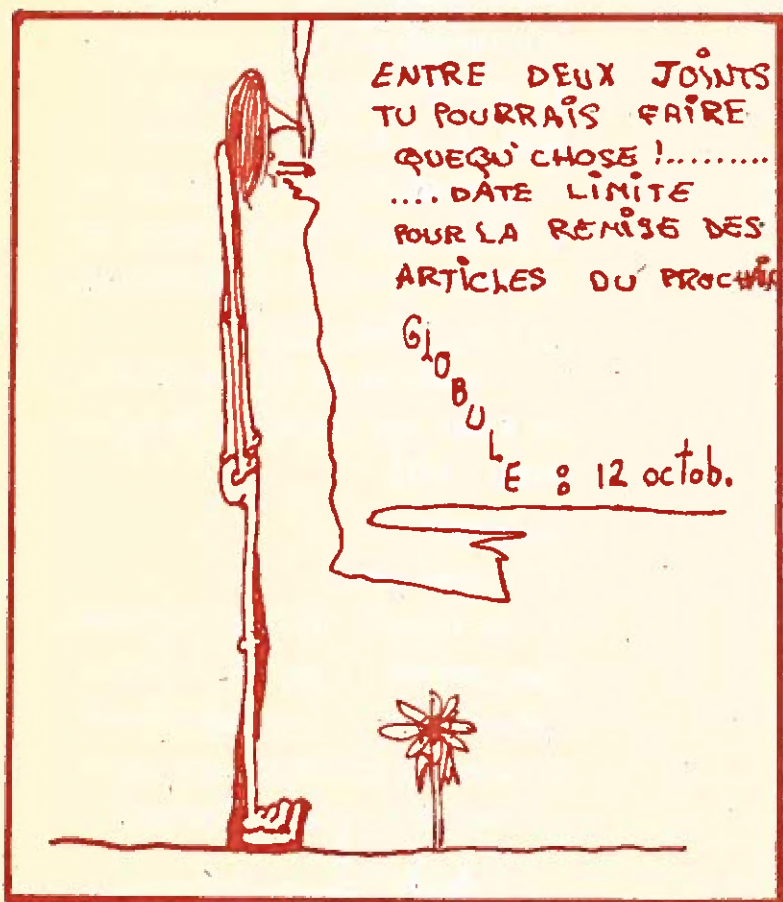 ENTRE DEUX JOINTS
TU POURRAIS FAIRE
QUEQU' CHOSE !.........
.... DATE LIMITE
POUR LA REMISE DES
ARTICLES DU PROCHAIN
GLOBULE : 12 octob.